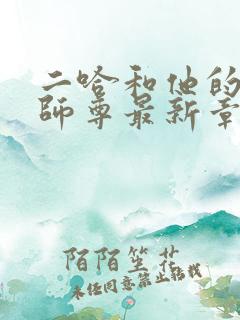 二哈和他的
師尊最新章
陌陌笙花
未经同意禁止转载